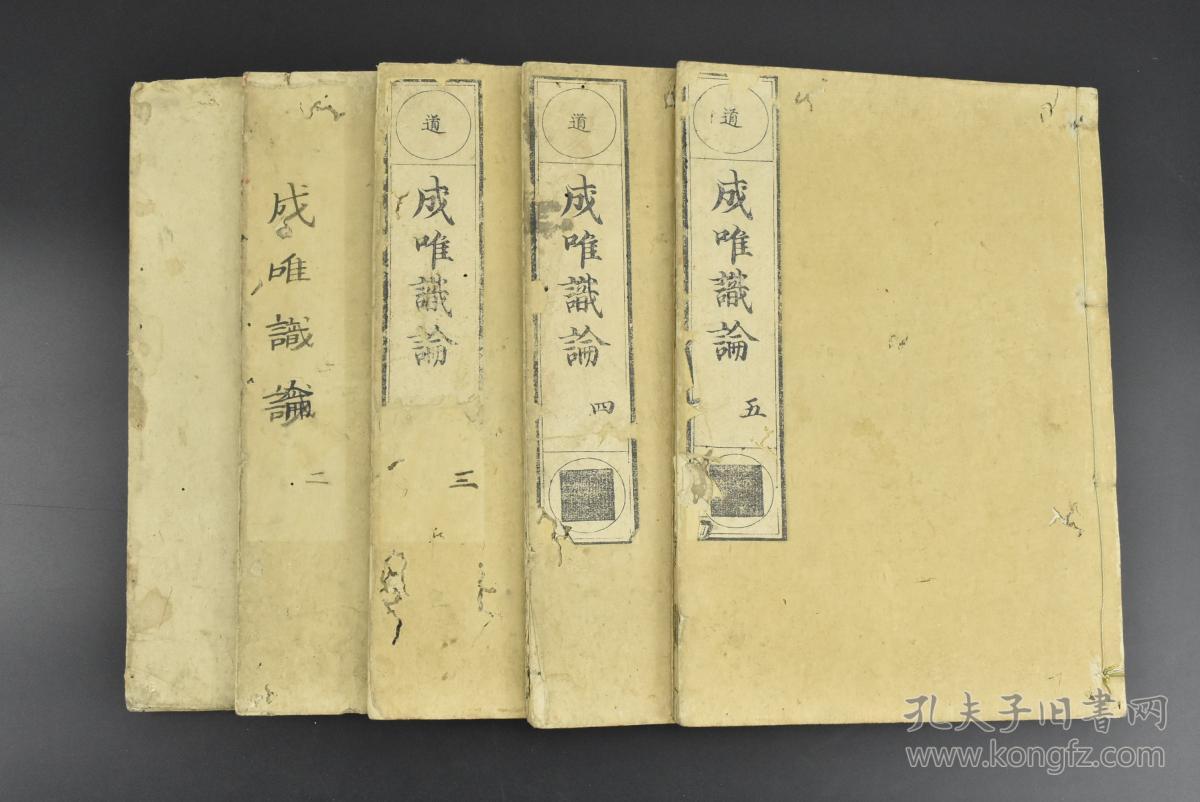 成唯識論
二
道
成唯識論
三
道
成唯識論
四
道
成唯識論
五
孔夫子旧書网
www.kongfz.com